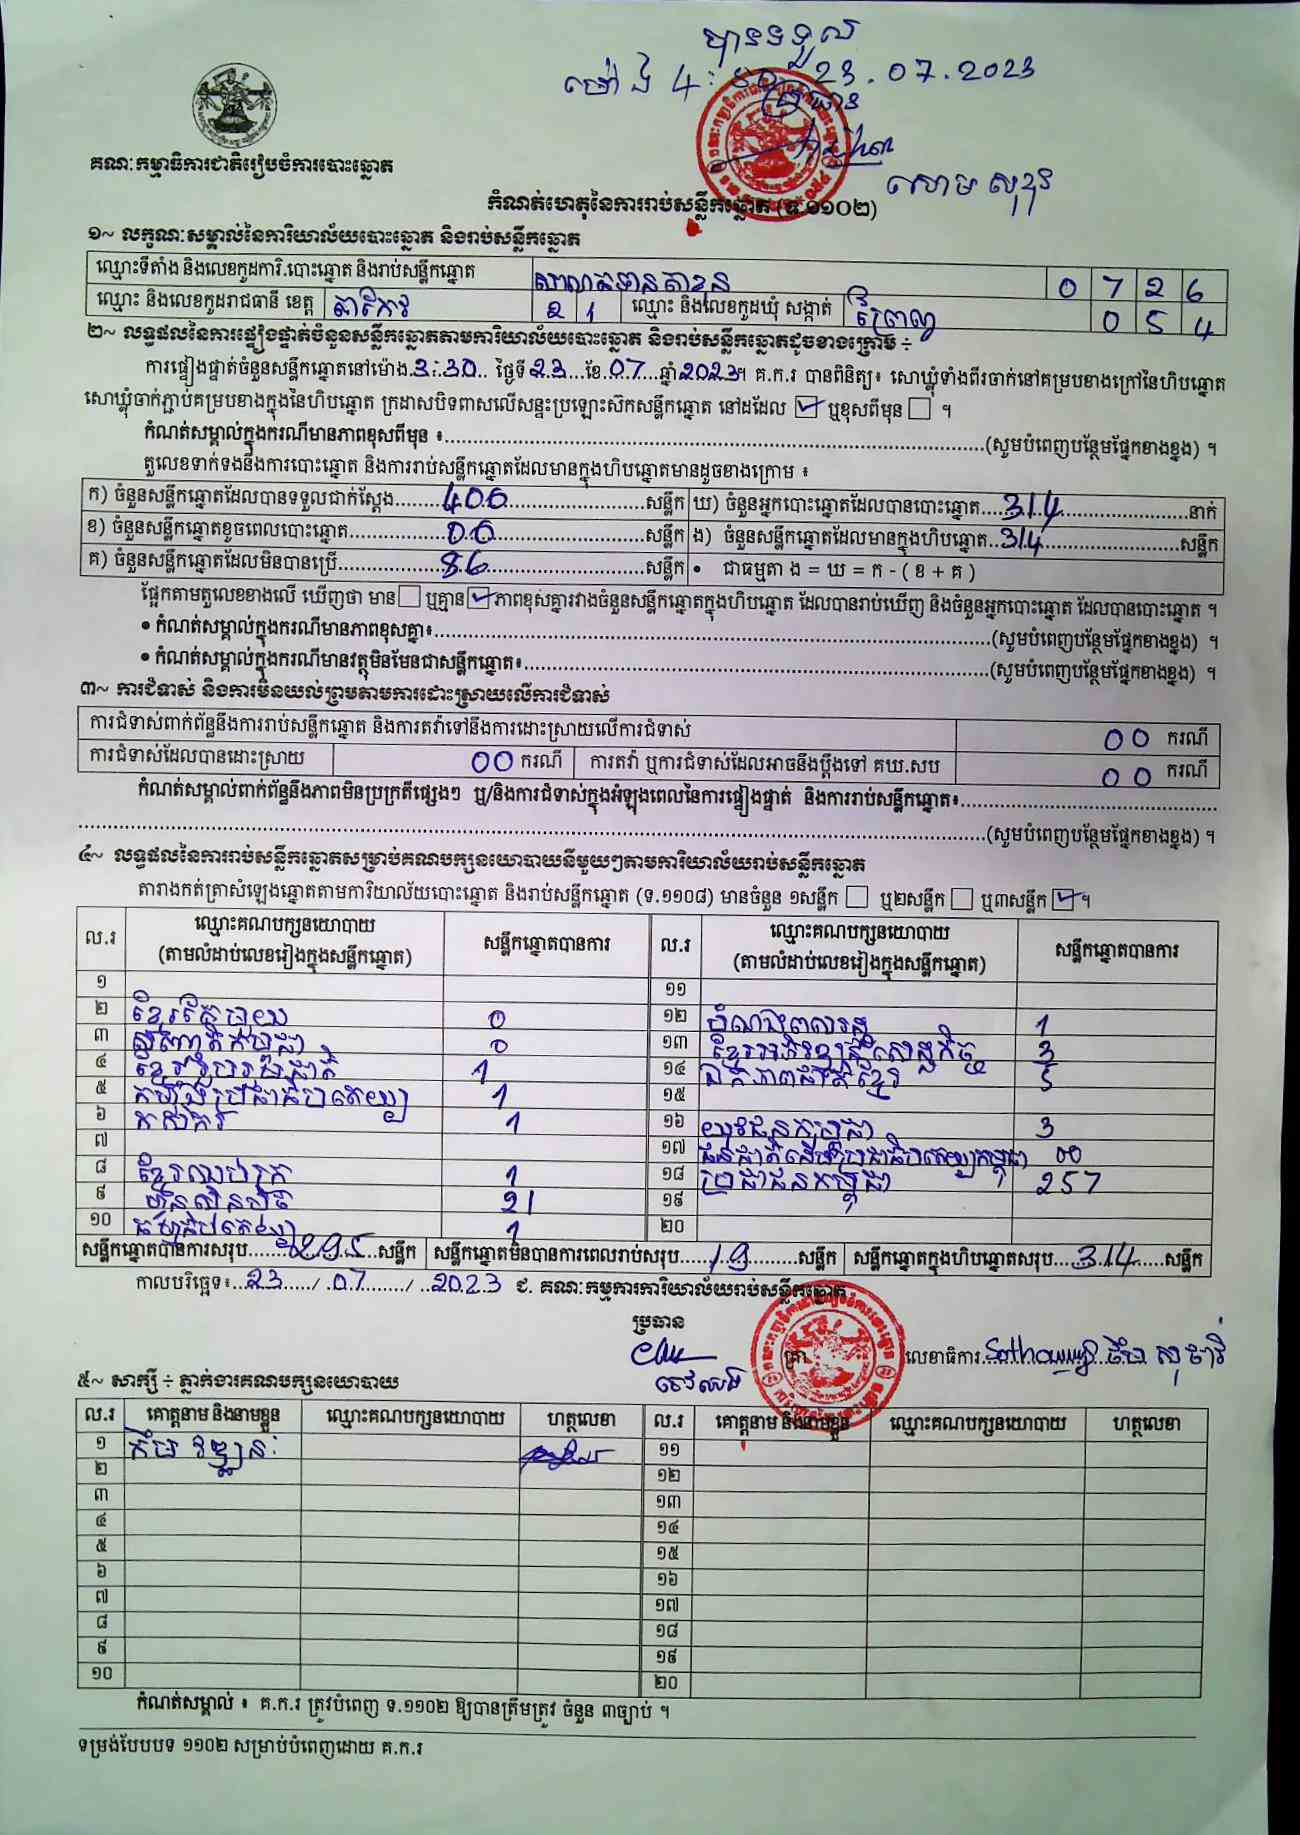 បានទទួល
ម៉ោង 4: 23.07.2023
ប្រធាន
សោម សុខុន
គណៈកម្មាធិការជាតិរៀបចំការបោះឆ្នោត
កំណត់ហេតុនៃការរាប់សន្លឹកឆ្នោត (ទ.១១០២)
១~ លក្ខណៈសម្គាល់នៃការិយាល័យបោះឆ្នោត និងរាប់សន្លឹកឆ្នោត
ឈ្មោះទីតាំង និងលេខកូដការិ.បោះឆ្នោត និងរាប់សន្លឹកឆ្នោត 0 7 2 6
ឈ្មោះ និងលេខកូដរាជធានី ខេត្ត តាកែវ 2 1 ឈ្មោះ និងលេខកូដឃុំ សង្កាត់ 0 5 4
២~ លទ្ធផលនៃការផ្ទៀងផ្ទាត់ចំនួនសន្លឹកឆ្នោតតាមការិយាល័យបោះឆ្នោត និងរាប់សន្លឹកឆ្នោតដូចខាងក្រោម ÷
ការផ្ទៀងផ្ទាត់ចំនួនសន្លឹកឆ្នោតនៅម៉ោង 3:30 ថ្ងៃទី 23 ខែ 07 ឆ្នាំ 2023។ គ.ក.រ បានពិនិត្យ៖ សោឃ្លុំទាំងពីរចាក់នៅគម្របខាងក្រៅនៃហិបឆ្នោត
សោឃ្លុំចាក់ភ្ជាប់គម្របខាងក្នុងនៃហិបឆ្នោត ក្រដាសបិទពាសលើសន្ទះប្រឡោះស៊កសន្លឹកឆ្នោត នៅដដែល ☑ ឬខុសពីមុន ☐ ។
កំណត់សម្គាល់ក្នុងករណីមានភាពខុសពីមុន ៖ (សូមបំពេញបន្ថែមផ្នែកខាងខ្នង) ។
តួលេខទាក់ទងនឹងការបោះឆ្នោត និងការរាប់សន្លឹកឆ្នោតដែលមានក្នុងហិបឆ្នោតមានដូចខាងក្រោម ៖
ក) ចំនួនសន្លឹកឆ្នោតដែលបានទទួលជាក់ស្តែង 400 សន្លឹក ឃ) ចំនួនអ្នកបោះឆ្នោតដែលបានបោះឆ្នោត 314 នាក់
ខ) ចំនួនសន្លឹកឆ្នោតខូចពេលបោះឆ្នោត 00 សន្លឹក ង) ចំនួនសន្លឹកឆ្នោតដែលមានក្នុងហិបឆ្នោត 314 សន្លឹក
គ) ចំនួនសន្លឹកឆ្នោតដែលមិនបានប្រើ 86 សន្លឹក • ជាធម្មតា ង = ឃ = ក - ( ខ + គ )
ផ្អែកតាមតួលេខខាងលើ ឃើញថា មាន ☐ ឬគ្មាន ☑ ភាពខុសគ្នារវាងចំនួនសន្លឹកឆ្នោតក្នុងហិបឆ្នោត ដែលបានរាប់ឃើញ និងចំនួនអ្នកបោះឆ្នោត ដែលបានបោះឆ្នោត ។
• កំណត់សម្គាល់ក្នុងករណីមានភាពខុសគ្នា៖ (សូមបំពេញបន្ថែមផ្នែកខាងខ្នង) ។
• កំណត់សម្គាល់ក្នុងករណីមានវត្ថុមិនមែនជាសន្លឹកឆ្នោត៖ (សូមបំពេញបន្ថែមផ្នែកខាងខ្នង) ។
៣~ ការជំទាស់ និងការមិនយល់ព្រមតាមការដោះស្រាយលើការជំទាស់
ការជំទាស់ពាក់ព័ន្ធនឹងការរាប់សន្លឹកឆ្នោត និងការតវ៉ាទៅនឹងការដោះស្រាយលើការជំទាស់ 00 ករណី
ការជំទាស់ដែលបានដោះស្រាយ 00 ករណី ការតវ៉ា ឬការជំទាស់ដែលអាចនឹងប្តឹងទៅ គឃ.សប 00 ករណី
កំណត់សម្គាល់ពាក់ព័ន្ធនឹងភាពមិនប្រក្រតីផ្សេងៗ ឬ/និងការជំទាស់ក្នុងអំឡុងពេលនៃការផ្ទៀងផ្ទាត់ និងការរាប់សន្លឹកឆ្នោត៖
(សូមបំពេញបន្ថែមផ្នែកខាងខ្នង) ។
៤~ លទ្ធផលនៃការរាប់សន្លឹកឆ្នោតសម្រាប់គណបក្សនយោបាយនីមួយៗតាមការិយាល័យរាប់សន្លឹកឆ្នោត
តារាងកត់ត្រាសំឡេងឆ្នោតតាមការិយាល័យបោះឆ្នោត និងរាប់សន្លឹកឆ្នោត (ទ.១១០៨) មានចំនួន ១សន្លឹក ☐ ឬ២សន្លឹក ☐ ឬ៣សន្លឹក ☑ ។
ល.រ ឈ្មោះគណបក្សនយោបាយ (តាមលំដាប់លេខរៀងក្នុងសន្លឹកឆ្នោត) សន្លឹកឆ្នោតបានការ ល.រ ឈ្មោះគណបក្សនយោបាយ (តាមលំដាប់លេខរៀងក្នុងសន្លឹកឆ្នោត) សន្លឹកឆ្នោតបានការ
១ ១១
២ ខ្មែរតែមួយ 0 ១២ 1
៣ 0 ១៣ ខ្មែរអភិវឌ្ឍន៍សេដ្ឋកិច្ច 3
៤ ខ្មែររួបរួមជាតិ 1 ១៤ ឯកភាពជាតិខ្មែរ 5
៥ កម្លាំងប្រជាធិបតេយ្យ 1 ១៥
៦ កសិករ 1 ១៦ យុវជនកម្ពុជា 3
៧ ១៧ ជនជាតិដើមប្រជាធិបតេយ្យកម្ពុជា 00
៨ ខ្មែរឈប់ក្រ 1 ១៨ ប្រជាជនកម្ពុជា 257
៩ ហ្វ៊ុនស៊ិនប៉ិច 21 ១៩
១០ ធម្មាធិបតេយ្យ 1 ២០
សន្លឹកឆ្នោតបានការសរុប 295 សន្លឹក សន្លឹកឆ្នោតមិនបានការពេលរាប់សរុប 19 សន្លឹក សន្លឹកឆ្នោតក្នុងហិបឆ្នោតសរុប 314 សន្លឹក
កាលបរិច្ឆេទ៖ 23 / 07 / 2023 ជ. គណៈកម្មការការិយាល័យរាប់សន្លឹកឆ្នោត
ប្រធាន
ត្រា លេខាធិការ
៥~ សាក្សី ÷ ភ្នាក់ងារគណបក្សនយោបាយ
ល.រ គោត្តនាម និងនាមខ្លួន ឈ្មោះគណបក្សនយោបាយ ហត្ថលេខា ល.រ គោត្តនាម និងនាមខ្លួន ឈ្មោះគណបក្សនយោបាយ ហត្ថលេខា
១ គឹម វឌ្ឍនៈ ១១
២ ១២
៣ ១៣
៤ ១៤
៥ ១៥
៦ ១៦
៧ ១៧
៨ ១៨
៩ ១៩
១០ ២០
កំណត់សម្គាល់ ៖ គ.ក.រ ត្រូវបំពេញ ទ.១១០២ ឱ្យបានត្រឹមត្រូវ ចំនួន ៣ច្បាប់ ។
ទម្រង់បែបបទ ១១០២ សម្រាប់បំពេញដោយ គ.ក.រ